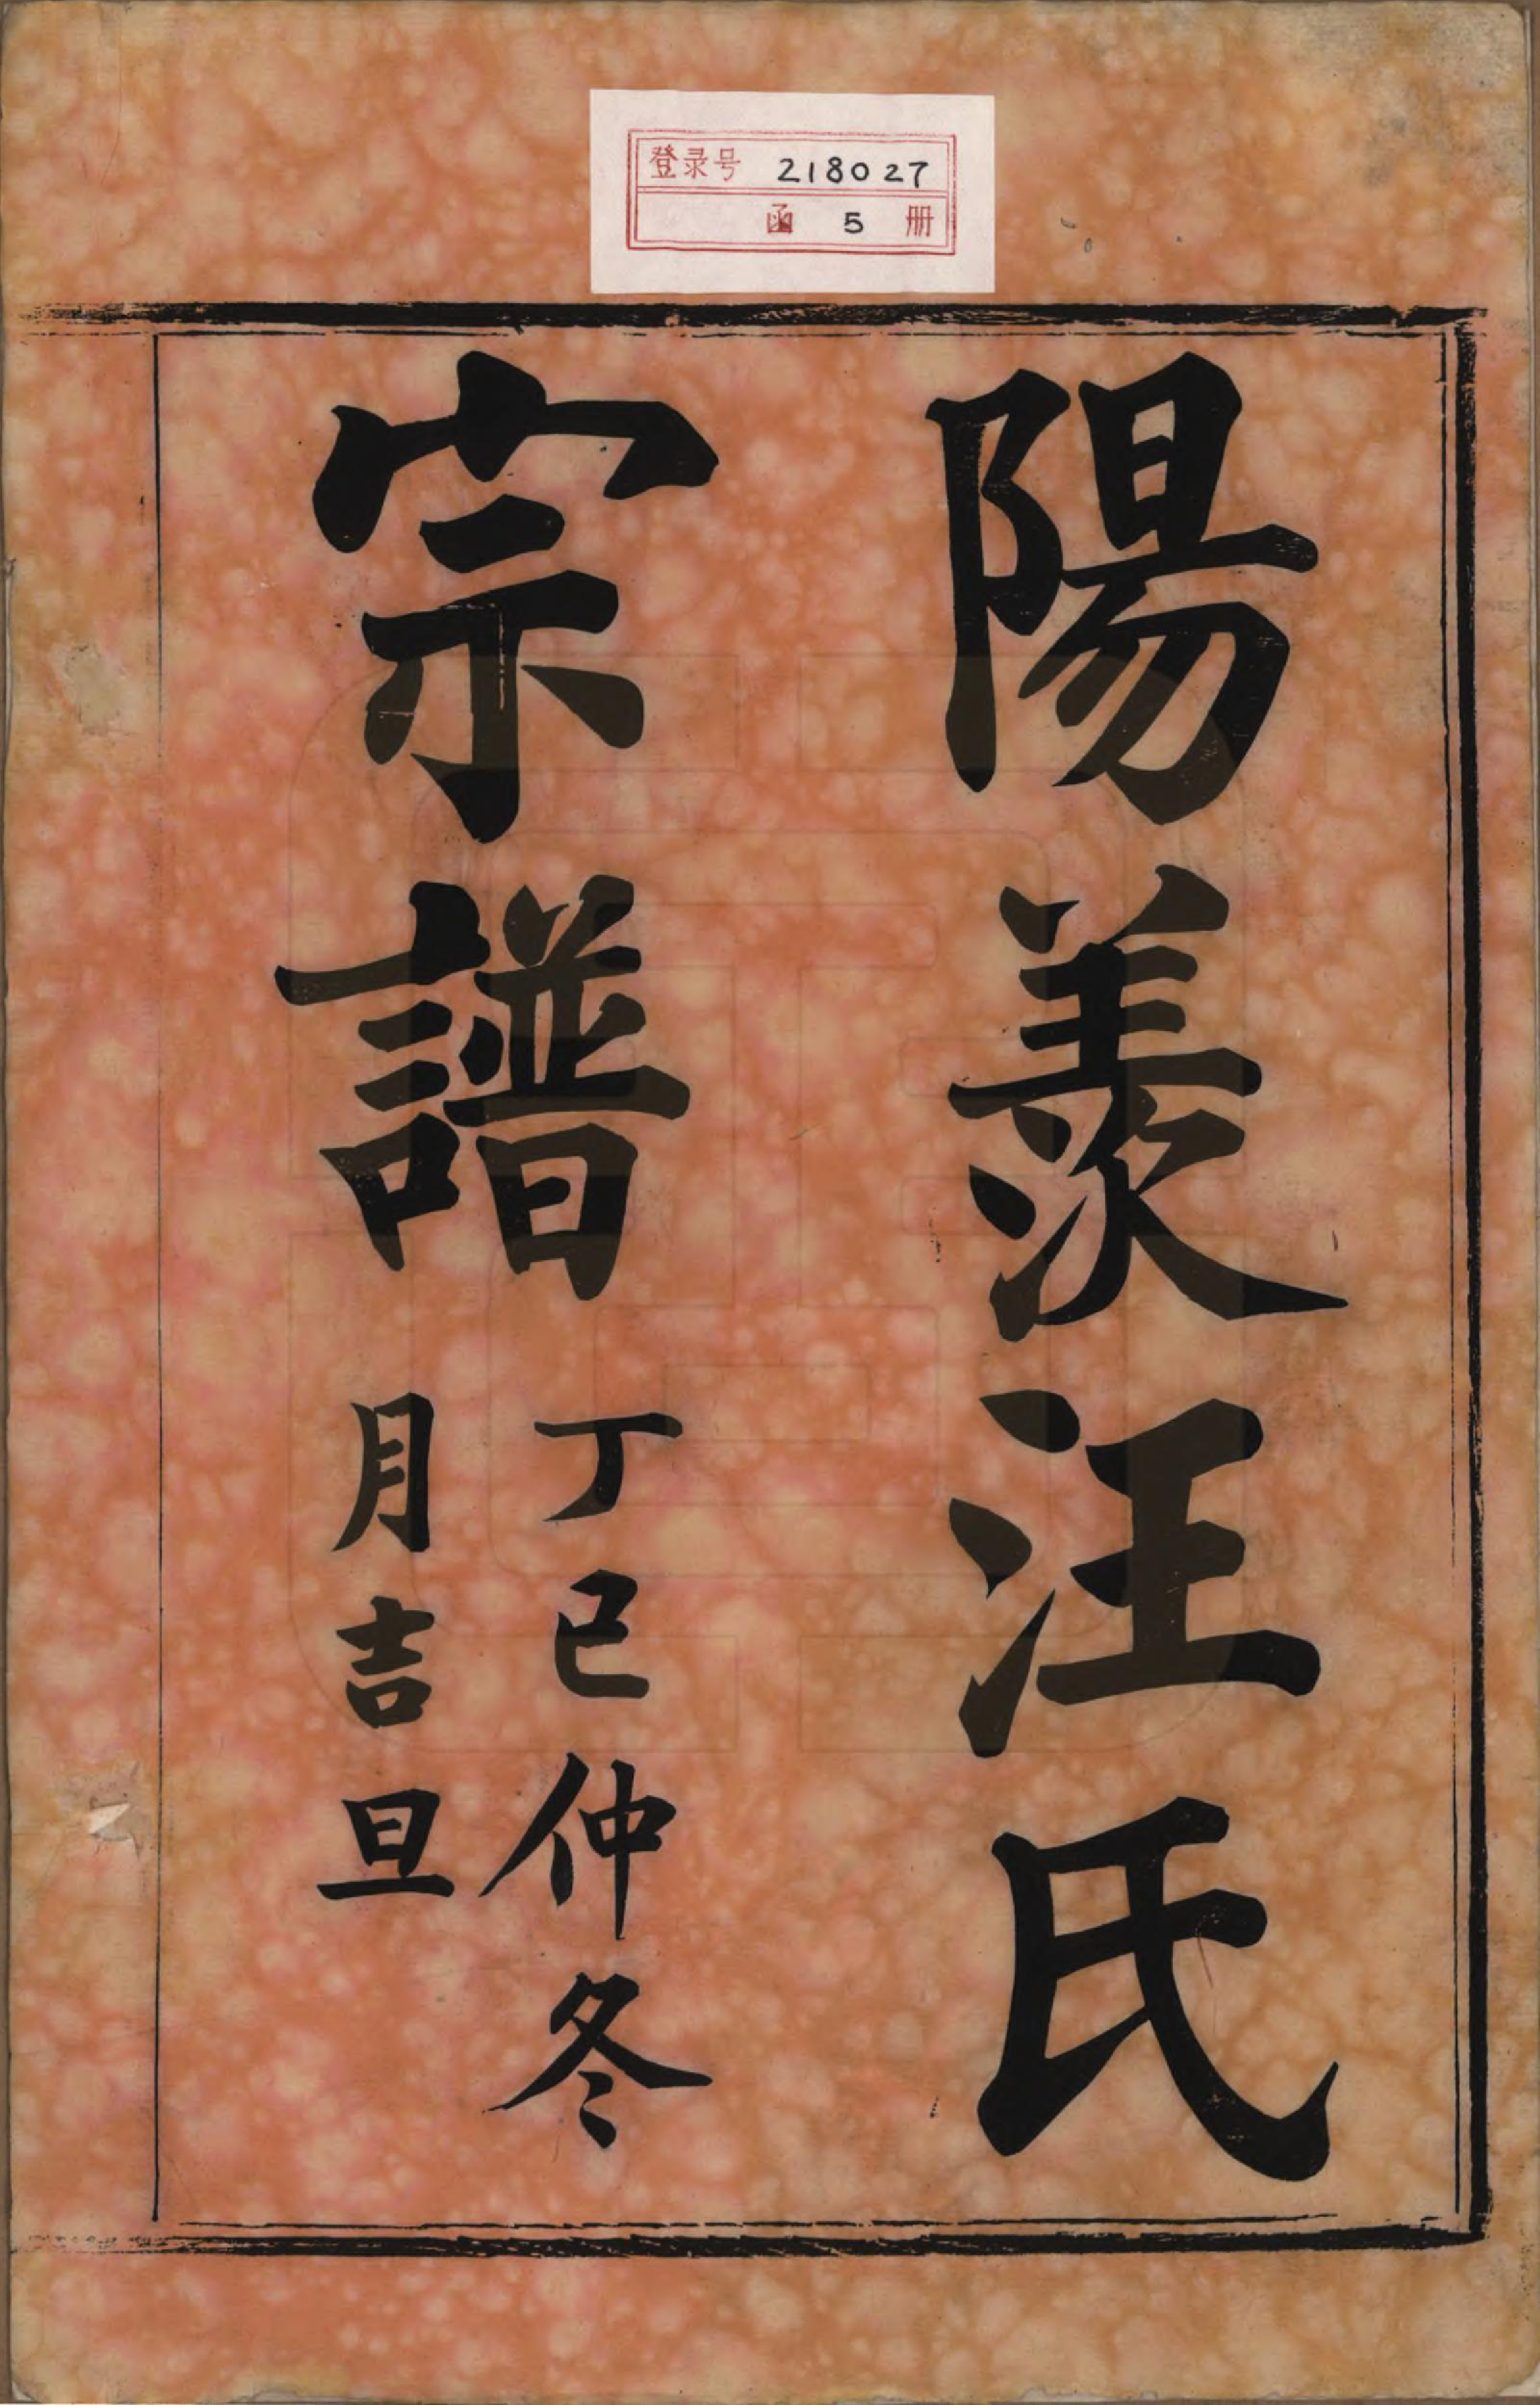 登录号 218027
函 5 册
陽羨汪氏
宗譜
丁巳仲冬
月吉旦